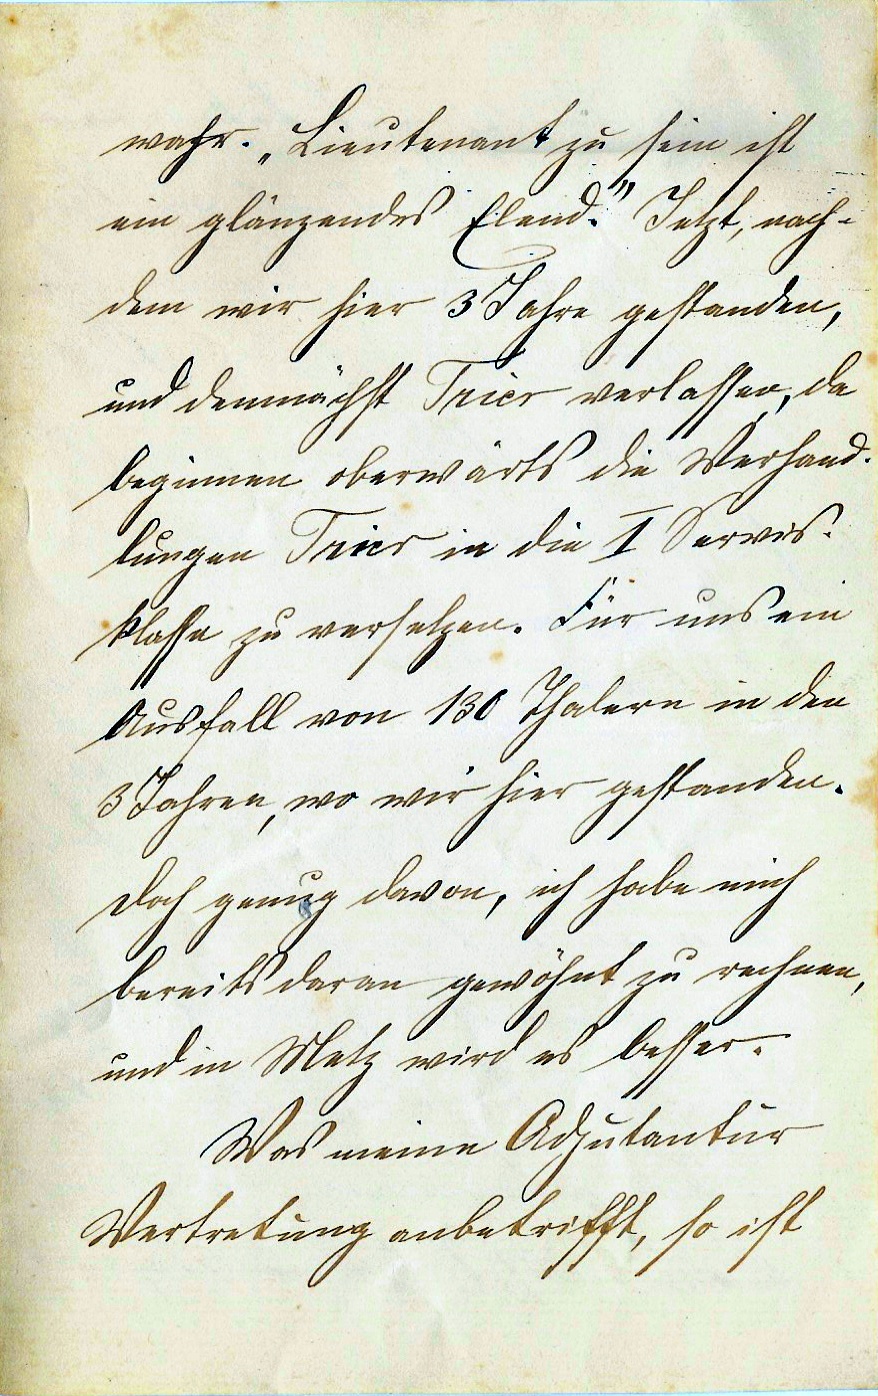 wahr. „Lieutenant zu sein ist
ein glänzendes Elend.“ Jetzt, nach-
dem wir hier 3 Jahre gestanden,
und demnächst Trier verlassen, da
beginnen oberwärts die Verhand-
lungen Trier in die I Servis-
klasse zu versetzen. Für uns ein
Ausfall von 130 Thalern in den
3 Jahren, wo wir hier gestanden.
Doch genug davon, ich habe mich
bereits daran gewöhnt zu rechnen,
und in Metz wird es besser.
Was meine Adjutantur
Vertretung anbetrifft, so ist